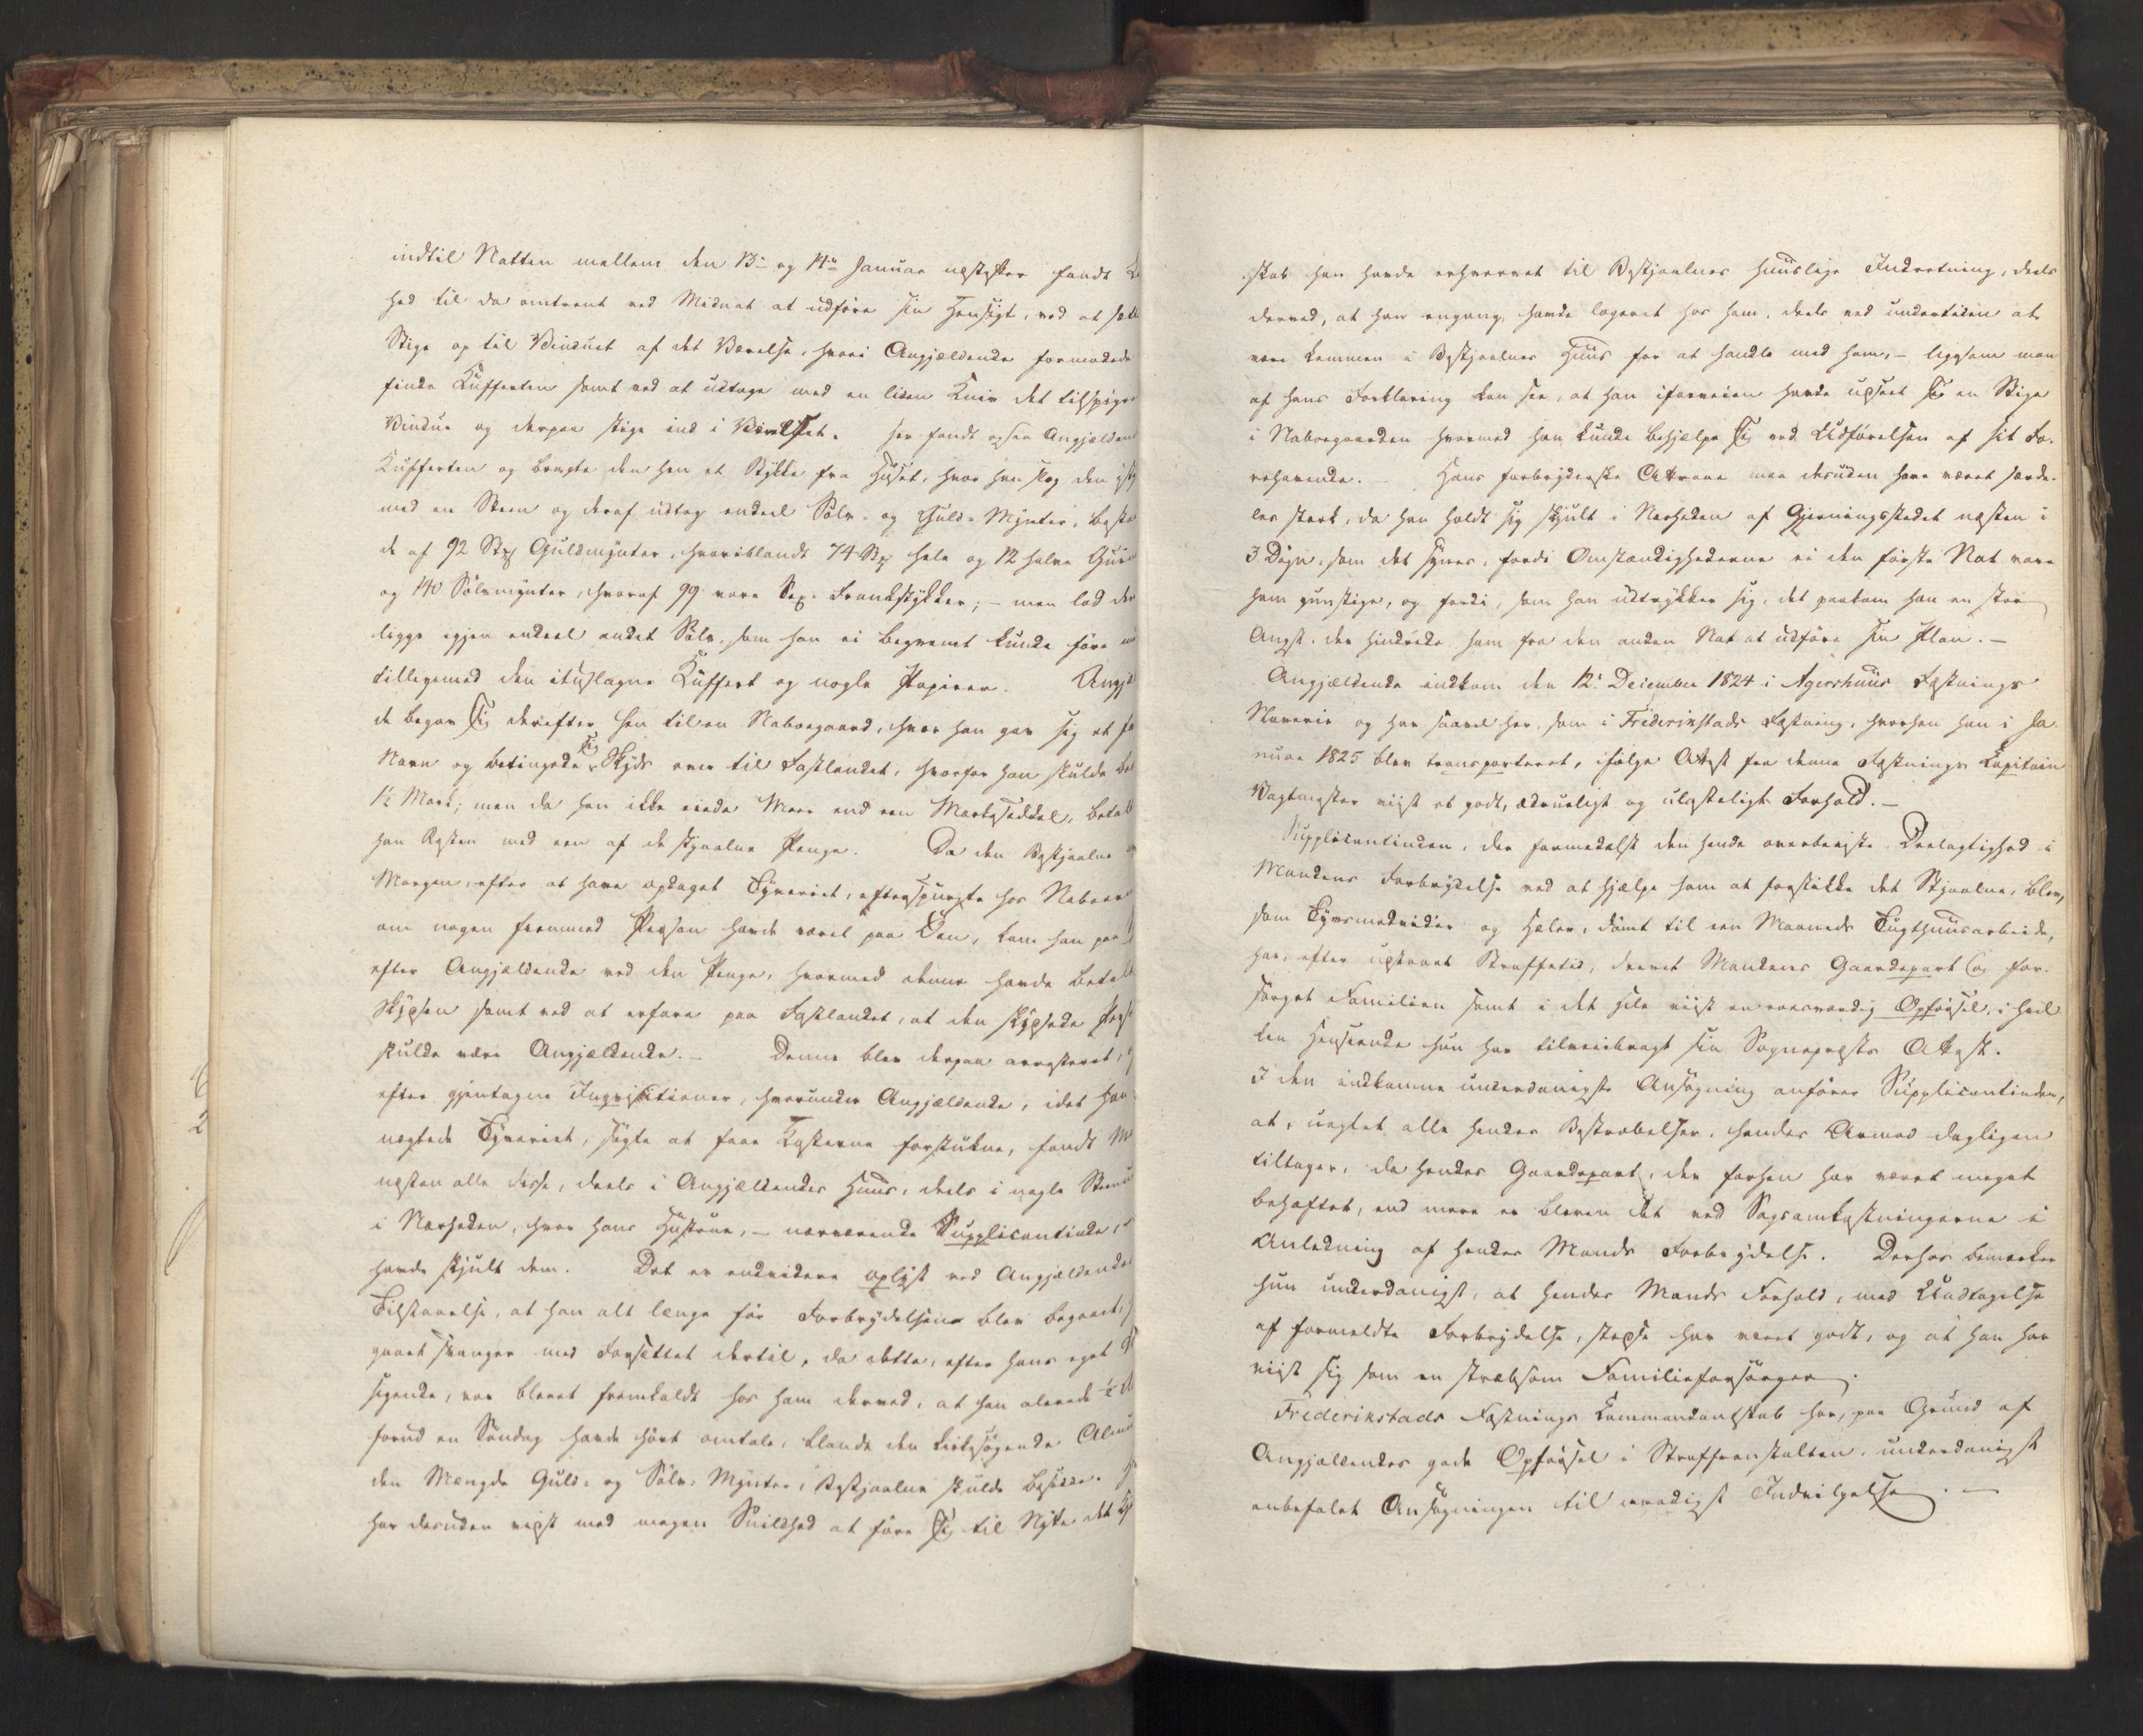 indtil Natten mellem den 13de og 14de Januar næstefter fandt Le
hed til da omtrent ved Midnat at udføre sin Hensigt, ved at sætte
Stige op til Vinduet af det Værelse, hvori Angjældende formodede
finde Kufferten samt ved at udtage med en liden Kniv det tilspigre
Vindue og derpaa stige ind i Værelset. Her fandt ogsaa Angjælden
Kufferten og bragte den hen et Stykke fra Huset, hvor han slog den itu
med en Steen og deraf udtog endeel Sølv- og Guld-Mynter, bestaa
de af 92 Stkr Guldmynter, hvoriblandt 74 Stkr hele og 12 halve Guin
og 140 Sølvmynter, hvoraf 99 vare Sex-Frankstykker; – men lod der
ligge igjen endeel andet Sølv, som han ei beqvemt kunde føre m
tilligemed den ituslagne Kuffert og nogle Papirer. Angjæl
de begav sig derefter hen til en Naboegaard, hvor han gav sig et fa
Navn og betingede sig Skyds over til Fastlandet, hvorfor han skulde be
1½ Mark; men da han ikke eiede Mere end een Markseddel, betalt
han Resten med een af de stjaalne Penge. Da den Bestjaalne o
Morgen, efter at have opdaget Tyveriet, efterspurgte hos Naboer
om nogen fremmed Person havde været paa Øen, kom han paa
efter Angjældende ved den Penge, hvormed denne havde betalt
Skydsen samt ved at erfare paa Fastlandet, at den skydsede Pers
skulde være Angjældende. – Denne blev derpaa arresteret,
efter gjentagne Inqvisitioner, hvorunder Angjældende, idet han
negtede Tyveriet, søgte at faae Kosterne forstukne, fandt M
næsten alle disse, deels i Angjældendes Huus, deels i nogle Steenu
i Nærheden, hvor hans Hustrue, – nærværende Supplicantinde, –
havde skjult dem. Det er endvidere oplyst ved Angjældendes
Tilstaaelse, at han alt længe før Forbrydelsen blev begaaet,
gaaet svanger med Forsættet dertil, da dette, efter hans eget
sigende, var blevet fremkaldt hos ham derved, at han allerede ½
forud en Søndag havde hørt omtale, blandt den kirkesøgende Almu
den Mængde Guld- og Sølv-Mynter, Bestjaalne skulde besidde.
har desuden viist med megen Snildhed at føre sig til Nytte det
skab han havde erhvervet til Bestjaalnes huuslige Indretning, deels
derved, at han engang havde logeret hos ham, deels ved undertiden at
være kommen i Bestjaalnes Huus for at handle med ham, – ligesom man
af hans Forklaring kan see, at han iforveien havde udseet sig en Stige
i Naboegaarden hvormed han kunde behjælpe sig ved Udførelsen af sit Fo-
rehavende. – Hans forbryderske Attraae maa desuden have været særde-
les stærk, da han holdt sig skjult i Nærheden af Gjerningsstedet næsten i
3 Døgn, som det synes, fordi Omstændighederne ei den første Nat vare
ham gunstige, og fordi, som han udtrykker sig, det paakom han en stor
Angst, der hindrede ham fra den anden Nat at udføre sin Plan. –
Angjældende indkom den 12te December 1824 i Agershuus Fæstnings
Slaverie og har saavel her, som i Frederikstads Fæstning, hvorhen han i Ja-
nuar 1825 blev transporteret, ifølge Attest fra denne Fæstnings Kapitain
Vagtmester viist et godt, ædrueligt og ulasteligt Forhold. –
Supplicantinden, der formedelst den hende overbeviste Deelagtighed i
Mandens Forbrydelse ved at hjælpe ham at forstikke det Stjaalne, blev,
som Tyvsmedvider og Hæler, dømt til een Maaneds Tugthuusarbeide,
har, efter udstaaet Straffetid, drevet Mandens Gaardepart og for-
sørget Familien samt i det Hele viist en roesværdig Opførsel, i hvil
ken Henseende hun har tilveiebragt sin Sognepræsts Attest.
I den indkomne underdanigste Ansøgning anfører Supplicantinden,
at, uagtet alle hendes Bestræbelser, hendes Armod dagligen
tiltager, da hendes Gaardepart, der forhen har været meget
behæftet, end mere er bleven det ved Sagsomkostningerne i
Anledning af hendes Mands Forbrydelse. Derhos bemærker
hun underdanigst, at hendes Mands Forhold, med Undtagelse
af formeldte Forbrydelse, stedse har været godt, og at han har
viist sig som en stræbsom Familieforsørger.
Frederikstads Fæstnings Kommandantskab har, paa Grund af
Angjældendes gode Opførsel i Straffeanstalten, underdanigst
anbefalet Ansøgningen til naadigst Indvilgelse. –